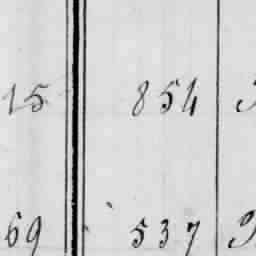 15 854
69 537